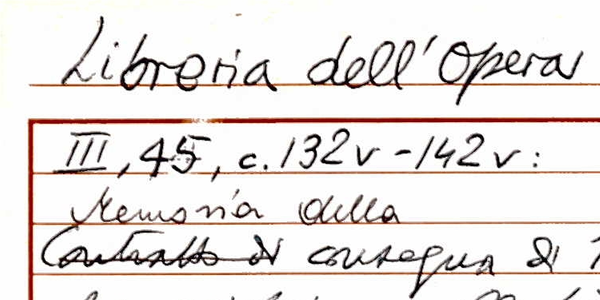 Libreria dell'Opera
III, 45, c. 132v - 142v:
Memoria della
Contratto di consegna di